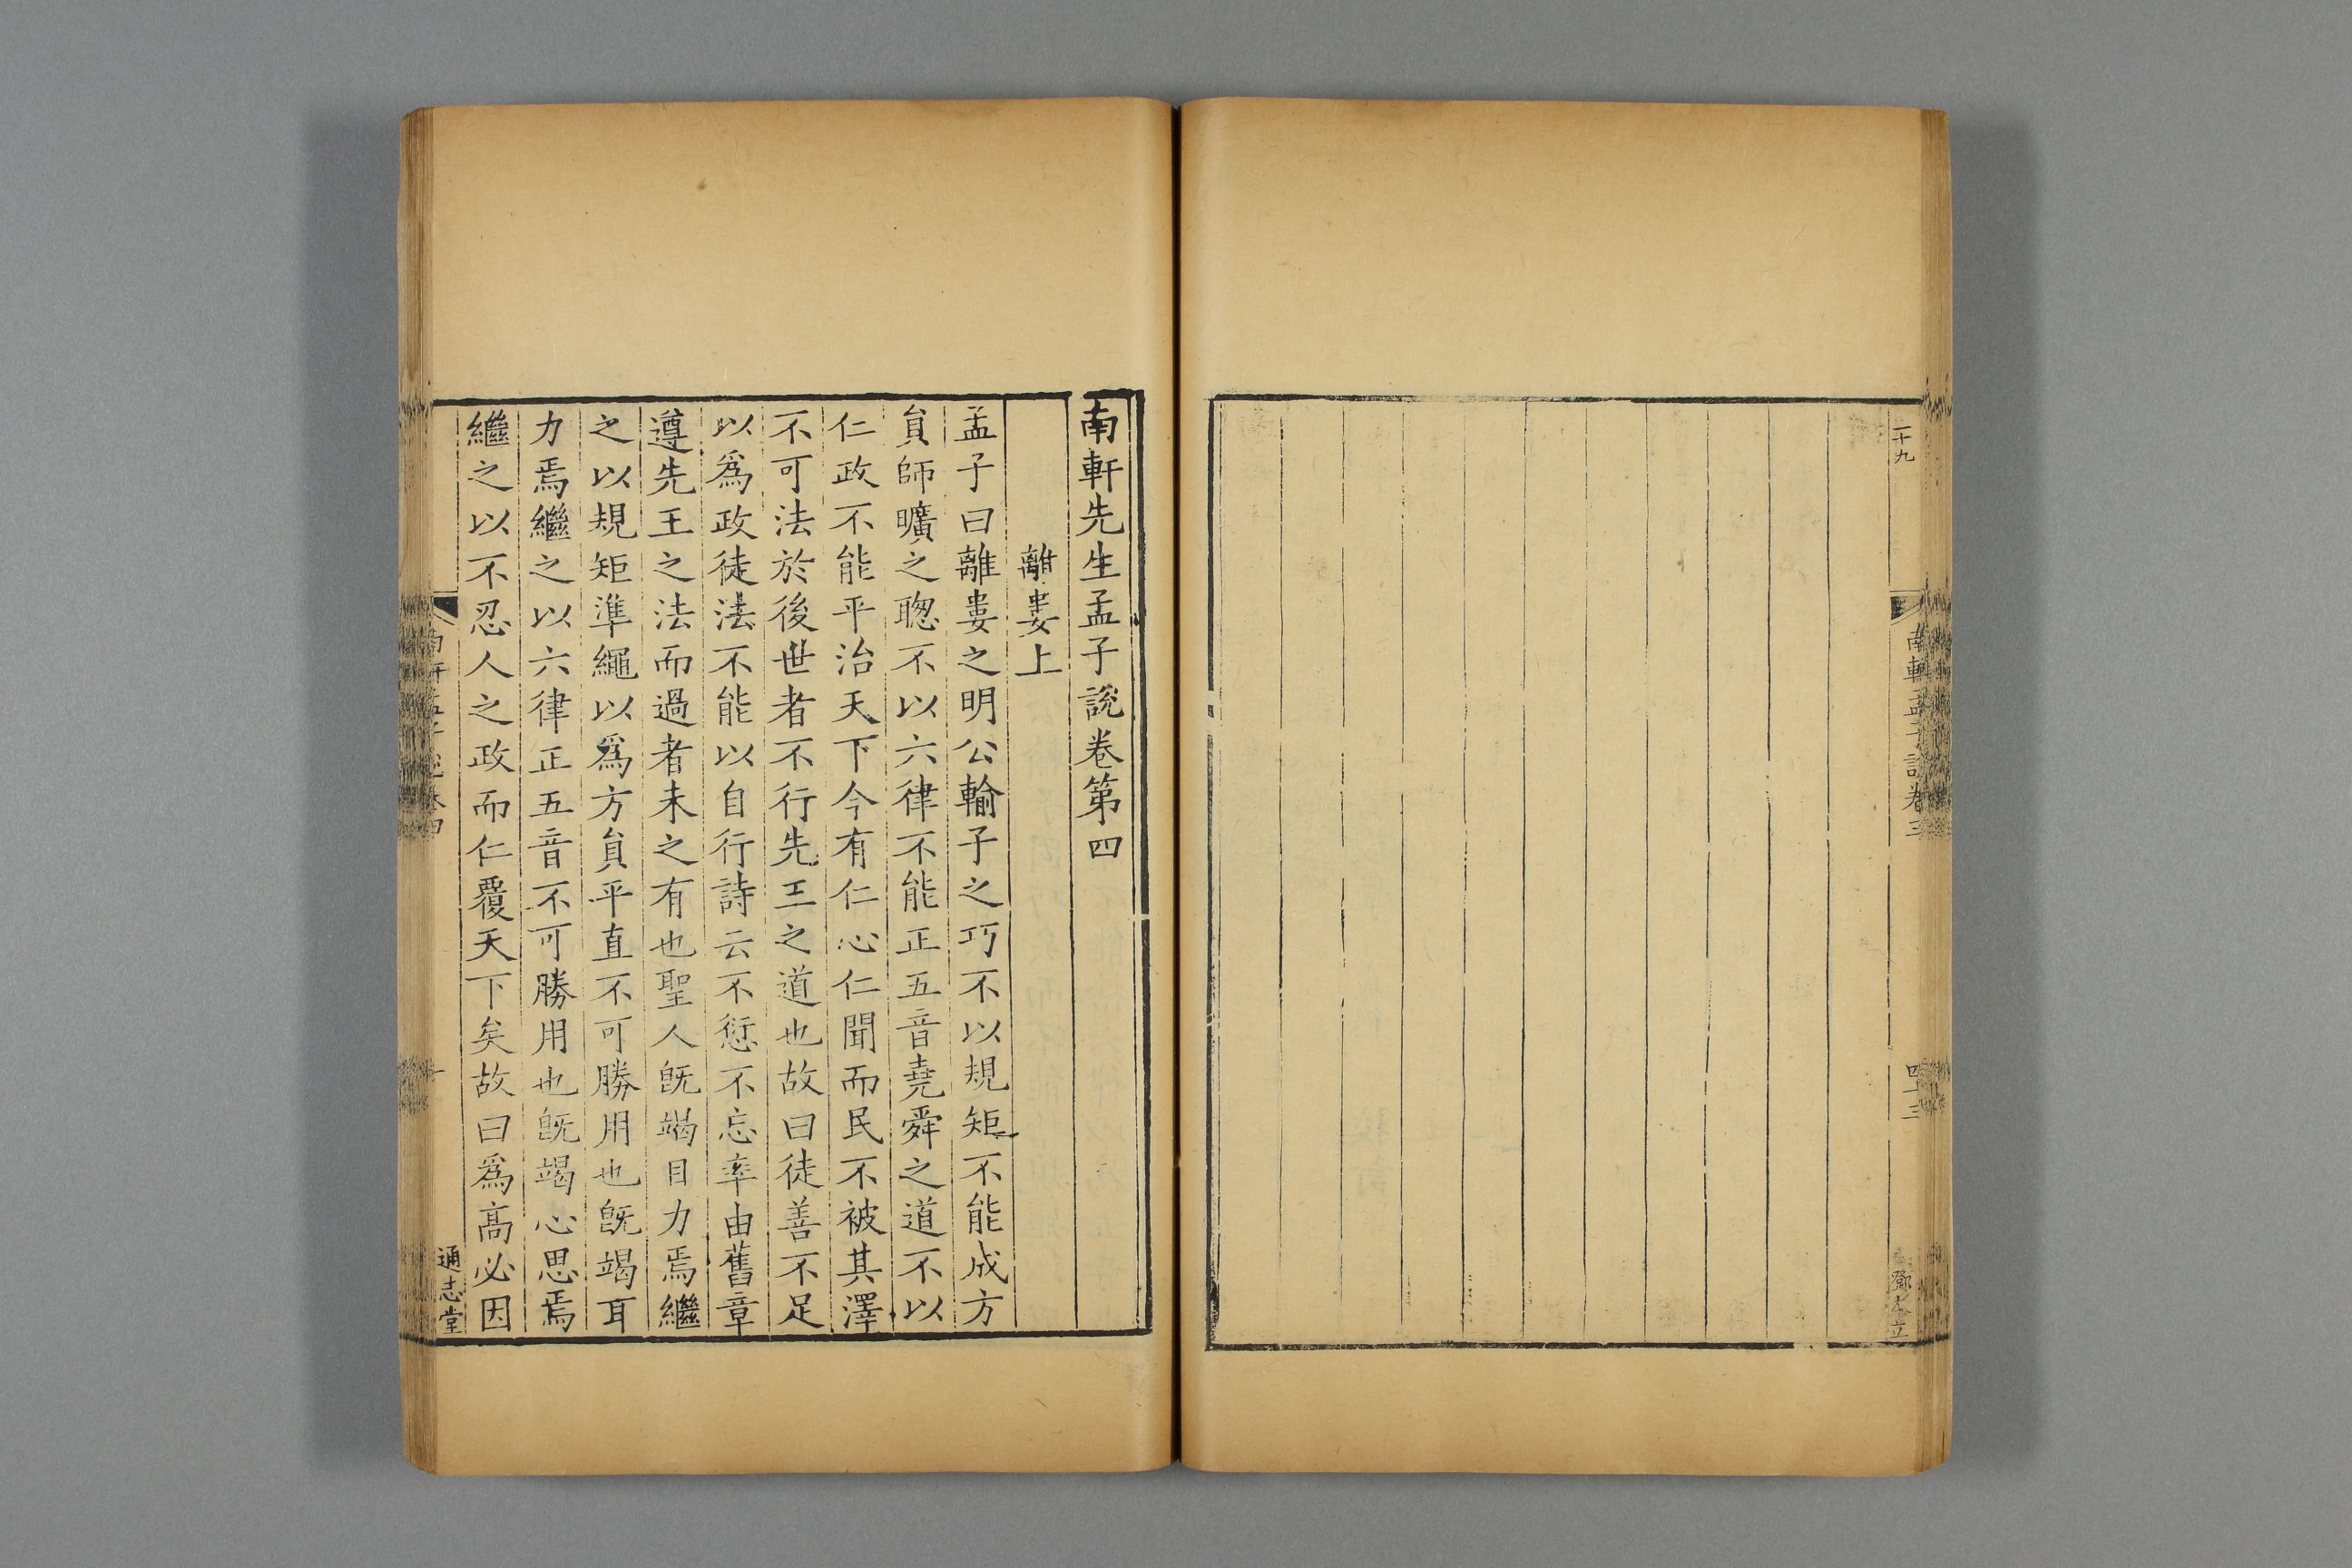 一十九
南軒孟子說卷三
四十三
鄧
立
南軒先生孟子說卷第四
離婁上
孟子曰離婁之明公輸子之巧不以規矩不能成方
貟師曠之聦不以六律不能正五音堯舜之道不以
仁政不能平治天下今有仁心仁聞而民不被其澤
不可法於後世者不行先王之道也故曰徒善不足
以爲政徒法不能以自行詩云不愆不忘率由舊章
遵先王之法而過者未之有也聖人既竭目力焉繼
之以規矩準繩以爲方貟平直不可勝用也既竭耳
力焉繼之以六律正五音不可勝用也既竭心思焉
繼之以不忍人之政而仁覆天下矣故曰爲髙必因
南軒孟子說卷四
一
通志堂